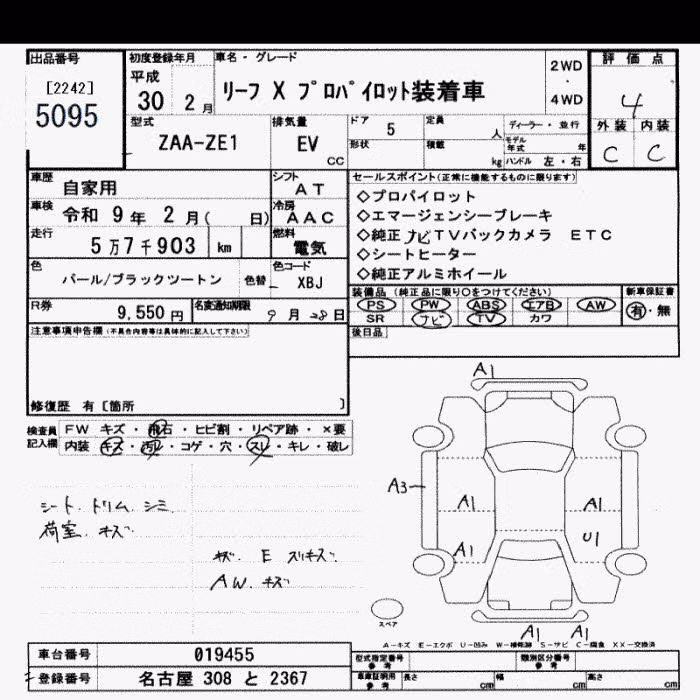 出品番号
[2242]
5095
初度登録年月
平成
30 2月
車名・グレード
リーフ X プロパイロット装着車
2WD
・
4WD
評価点
4
外装 内装
C C
型式
ZAA-ZE1
排気量
EV
CC
ドア 5
定員 人
形状
積載 kg
ディーラー・並行
モデル年式 年
ハンドル 左・右
車歴
自家用
シフト
AT
車検
令和 9年 2月( 日)
冷房
AAC
走行
5万7千903 km
燃料
電気
色
パール/ブラックツートン
色替
色コード
XBJ
R券
9,550円
名変通知期限
9月28日
セールスポイント(正常に機能するものに限ります)
◇プロパイロット
◇エマージェンシーブレーキ
◇純正ナビTVバックカメラ ETC
◇シートヒーター
◇純正アルミホイール
装備品(純正品に限り○をつけてください)
PS PW ABS エアB AW
SR ナビ TV カワ
新車保証書
有・無
後日品
注意事項申告欄(不具合内容等は具体的に記入して下さい)
修復歴 有[箇所 ]
検査員
記入欄
FW キズ・飛石・ヒビ割・リペア跡・×要
内装 キズ・汚れ・コゲ・穴・スレ・キレ・破レ
シート.トリム シミ
荷室.キズ
キズ. E スリキズ.
AW.キズ
A1
A3
A1
A1
A1
U1
A1
A1
スペア
A−キズ E−エクボ U−凹み W−補修跡 S−サビ C−腐食 XX−交換済
車台番号
019455
登録番号
名古屋 308 と 2367
型式指定番号
参考
類別区分番号
参考
車庫証明用
参考
長さ cm
幅 cm
高さ cm